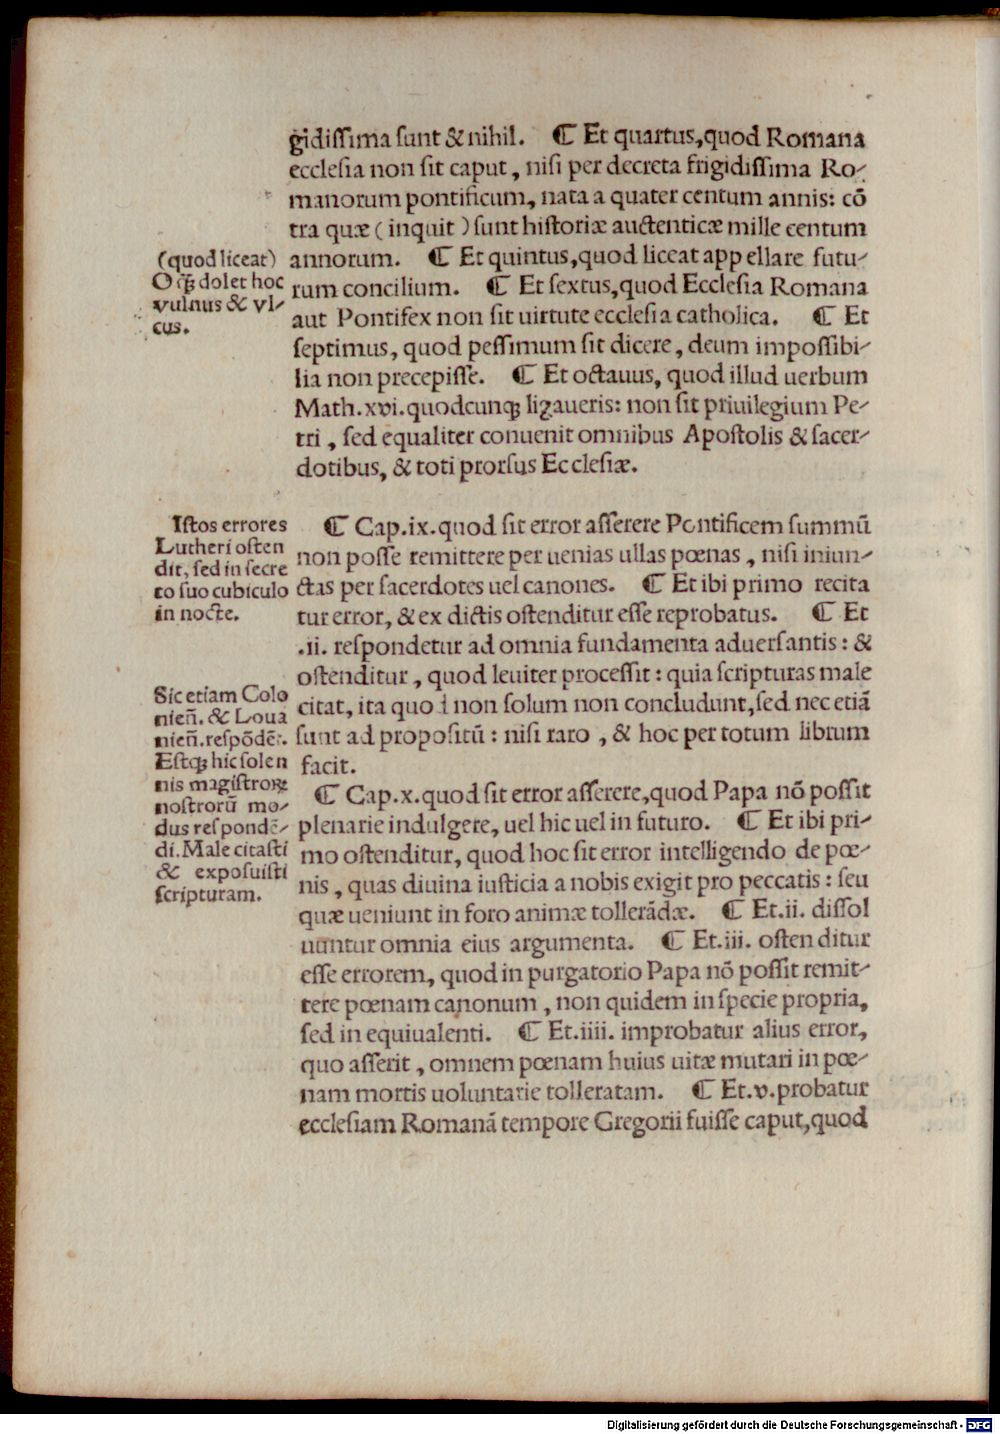 gidissima sunt & nihil. ⸿ Et quartus, quod Romana
ecclesia non sit caput, nisi per decreta frigidissima Ro-
manorum pontificum, nata a quater centum annis: cō
tra quæ (inquit) sunt historiæ auctenticæ mille centum
annorum. ⸿ Et quintus, quod liceat appellare futu-
rum concilium. ⸿ Et sextus, quod Ecclesia Romana
aut Pontifex non sit uirtute ecclesia catholica. ⸿ Et
septimus, quod pessimum sit dicere, deum impossibi-
lia non precepisse. ⸿ Et octauus, quod illud uerbum
Math.xvi.quodcunqꝫ ligaueris: non sit priuilegium Pe-
tri, sed equaliter conuenit omnibus Apostolis & sacer-
dotibus, & toti prorsus Ecclesiæ.
(quod liceat)
O qꝫ dolet hoc
vulnus & vl-
cus.
⸿ Cap.ix.quod sit error asserere Pontificem summū
non posse remittere per uenias ullas pœnas, nisi iniun-
ctas per sacerdotes uel canones. ⸿ Et ibi primo recita
tur error, & ex dictis ostenditur esse reprobatus. ⸿ Et
.ii. respondetur ad omnia fundamenta aduersantis: &
ostenditur, quod leuiter processit: quia scripturas male
citat, ita quod non solum non concludunt, sed nec etiā
sunt ad propositū: nisi raro, & hoc per totum librum
facit.
Istos errores
Lutheri osten
dit, sed in secre
to suo cubiculo
in nocte.
Sic etiam Colo
nieñ. & Loua
nieñ. respōdēt.
Estqꝫ hic solen
nis magistroꝝ
nostrorū mo-
dus respondē-
di. Male citasti
& exposuisti
scripturam.
⸿ Cap.x.quod sit error asserere, quod Papa nō possit
plenarie indulgere, uel hic uel in futuro. ⸿ Et ibi pri-
mo ostenditur, quod hoc sit error intelligendo de pœ-
nis, quas diuina iusticia a nobis exigit pro peccatis: seu
quæ ueniunt in foro animæ tollerādæ. ⸿ Et.ii. dissol
uuntur omnia eius argumenta. ⸿ Et.iii. ostenditur
esse errorem, quod in purgatorio Papa nō possit remit-
tere pœnam canonum, non quidem in specie propria,
sed in equiualenti. ⸿ Et.iiii. improbatur alius error,
quo asserit, omnem pœnam huius uitæ mutari in pœ-
nam mortis uoluntarie tolleratam. ⸿ Et.v.probatur
ecclesiam Romanā tempore Gregorii fuisse caput, quod
Digitalisierung gefördert durch die Deutsche Forschungsgemeinschaft - DFG